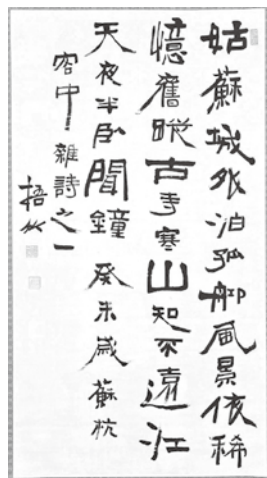 姑蘇城外泊孤舟風景依稀
憶舊蹤古寺寒山知不遠江
天夜半臥聞鐘 癸未歲蘇杭
客中雜詩之一
梧竹